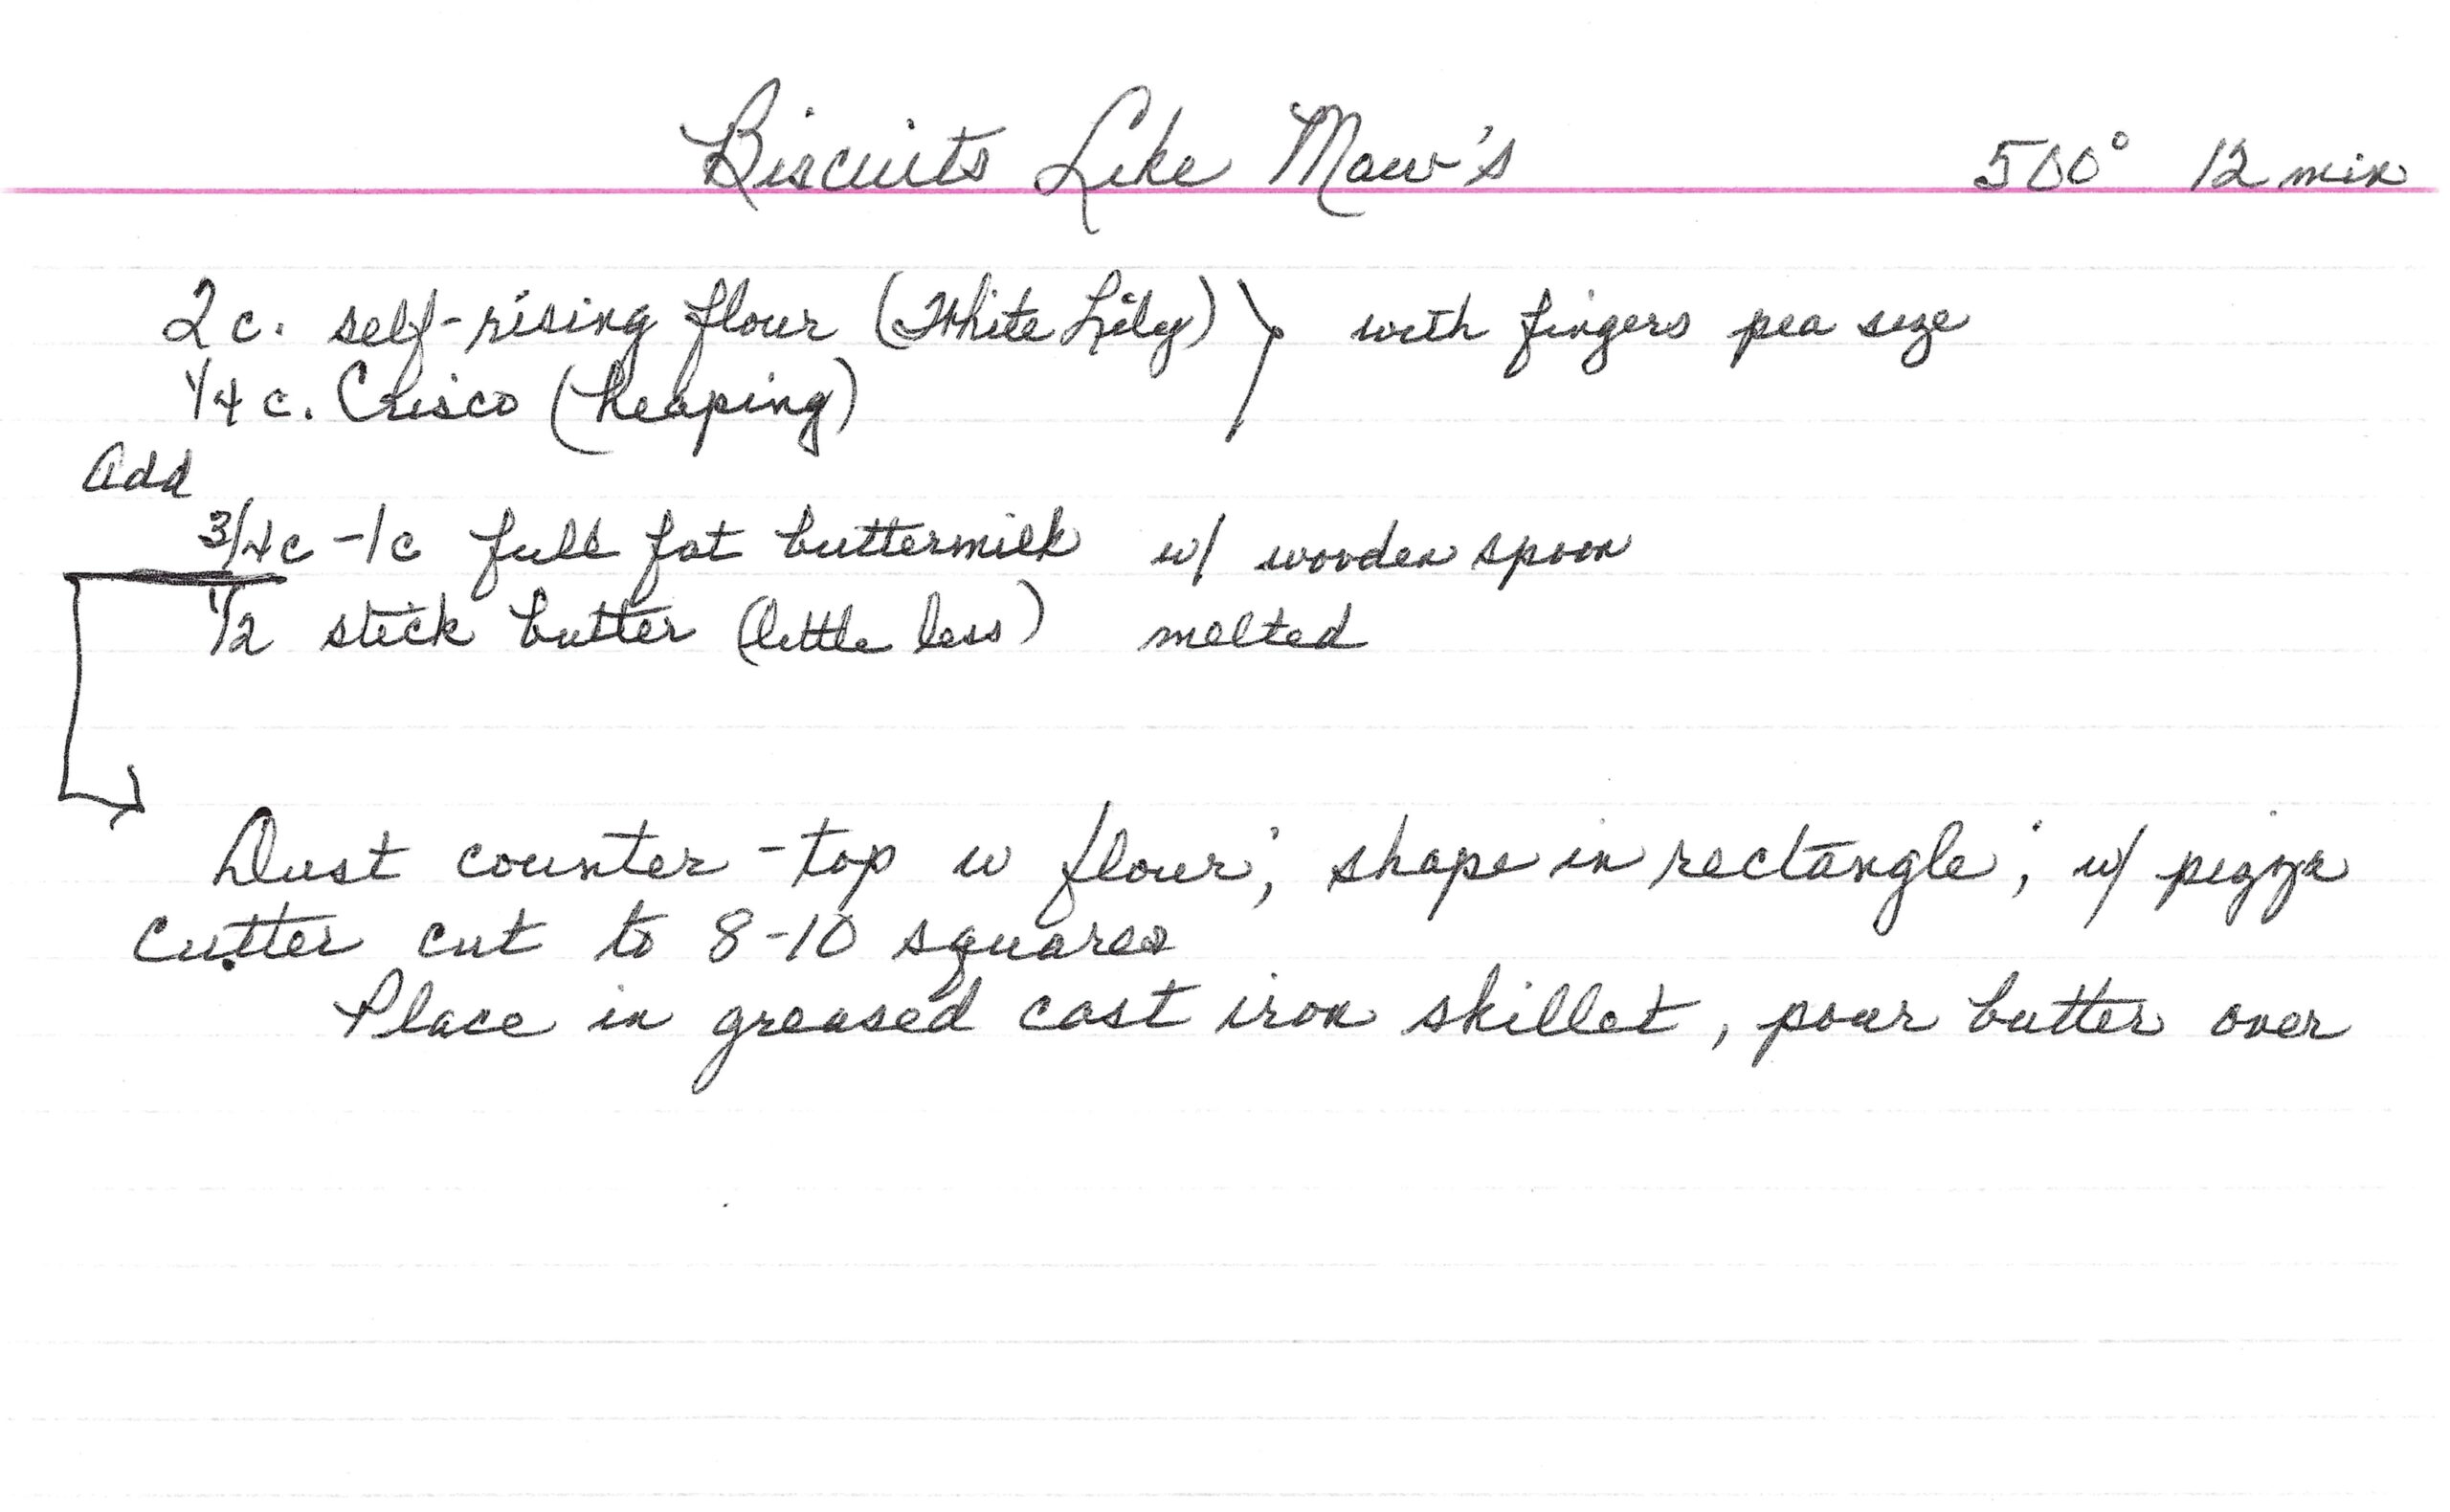 Biscuits Like Maw's 500° 12 min
2 c. self-rising flour (White Lily) } with fingers pea size
1/4 c. Crisco (heaping)
Add
3/4c - 1c full fat buttermilk w/ wooden spoon
1/2 stick butter (little less) melted
Dust counter-top w flour; shape in rectangle; w/ pizza
cutter cut to 8-10 squares
Place in greased cast iron skillet, pour butter over